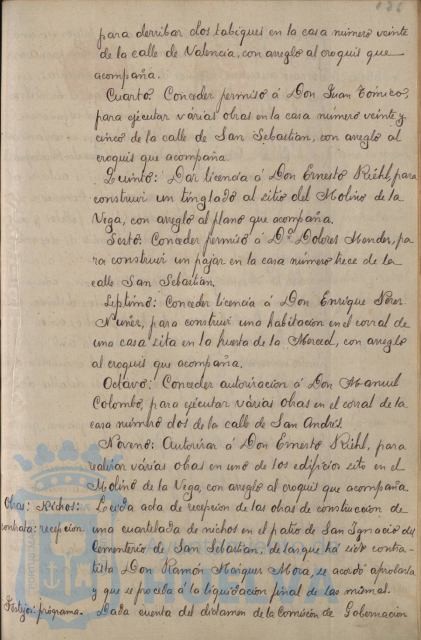 136
para derribar dos tabiques en la casa número veinte
de la calle de Valencia, con arreglo al croquis que
acompaña.
Cuarto: Conceder permiso á Don Juan
para ejecutar várias obras en la casa número veinte y
cinco de la calle de San Sebastian, con arreglo al
croquis que acompaña.
Quinto: Dar licencia á Don Ernesto Riehl, para
construir un tinglado al sitio del Molino de la
Vega, con arreglo al plano que acompaña.
Sesto: Conceder permiso á Dª Dolores Mendez, pa
ra construir un pajar en la casa número trece de la
calle San Sebastian.
Septimo: Conceder licencia á Don Enrique Perez
Nuñez, para construir una habitacion en el corral de
una casa sita en la huerta de la Merced, con arreglo
al croquis que acompaña.
Octavo: Conceder autorizacion á Don Manuel
Colombo, para ejecutar várias obras en el corral de la
casa número dos de la calle de San Andrés.
Noveno: Autorizar á Don Ernesto Riehl, para
realizar várias obras en uno de los edificios sito en el
Molino de la Vega, con arreglo al croquis que acompaña.
Obras: Nichos: Leida acta de recepcion de las obras de construccion de
contrata: recepcion una cuartelada de nichos en el patio de San Ignacio del
Cementerio de San Sebastian, de las que há sido contra-
tista Don Ramón Maiquez Mora, se acordó aprobarla
y que se proceda á la liquidacion final de las mismas.
Festejos: programa. Dada cuenta del dictamen de la Comision de Gobernacion
HUELVA